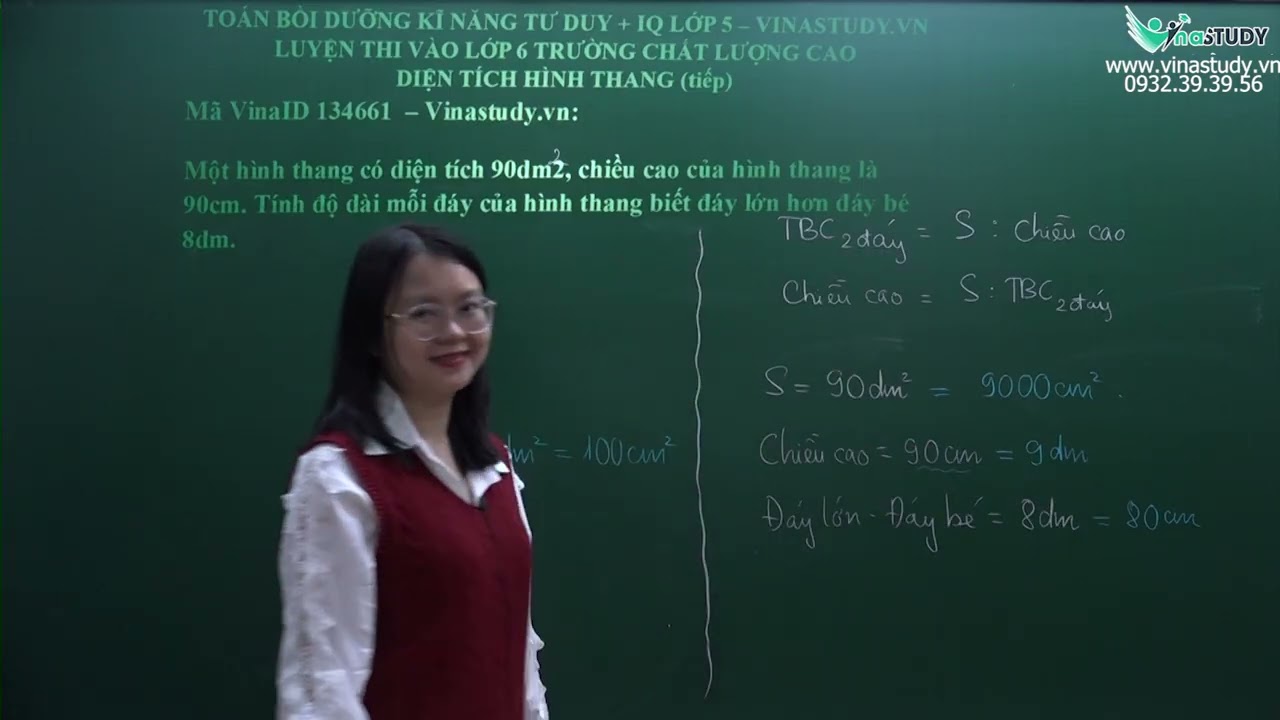 TOÁN BỒI DƯỠNG KĨ NĂNG TƯ DUY + IQ LỚP 5 – VINASTUDY.VN
LUYỆN THI VÀO LỚP 6 TRƯỜNG CHẤT LƯỢNG CAO
DIỆN TÍCH HÌNH THANG (tiếp)
Mã VinaID 134661 – Vinastudy.vn:
VinaSTUDY
www.vinastudy.vn
0932.39.39.56
Một hình thang có diện tích 90dm2, chiều cao của hình thang là
90cm. Tính độ dài mỗi đáy của hình thang biết đáy lớn hơn đáy bé
8dm.
dm² = 100cm²
TBC 2 đáy = S : Chiều cao
Chiều cao = S : TBC 2 đáy
S = 90dm² = 9000cm².
Chiều cao = 90cm = 9dm
Đáy lớn - Đáy bé = 8dm = 80cm